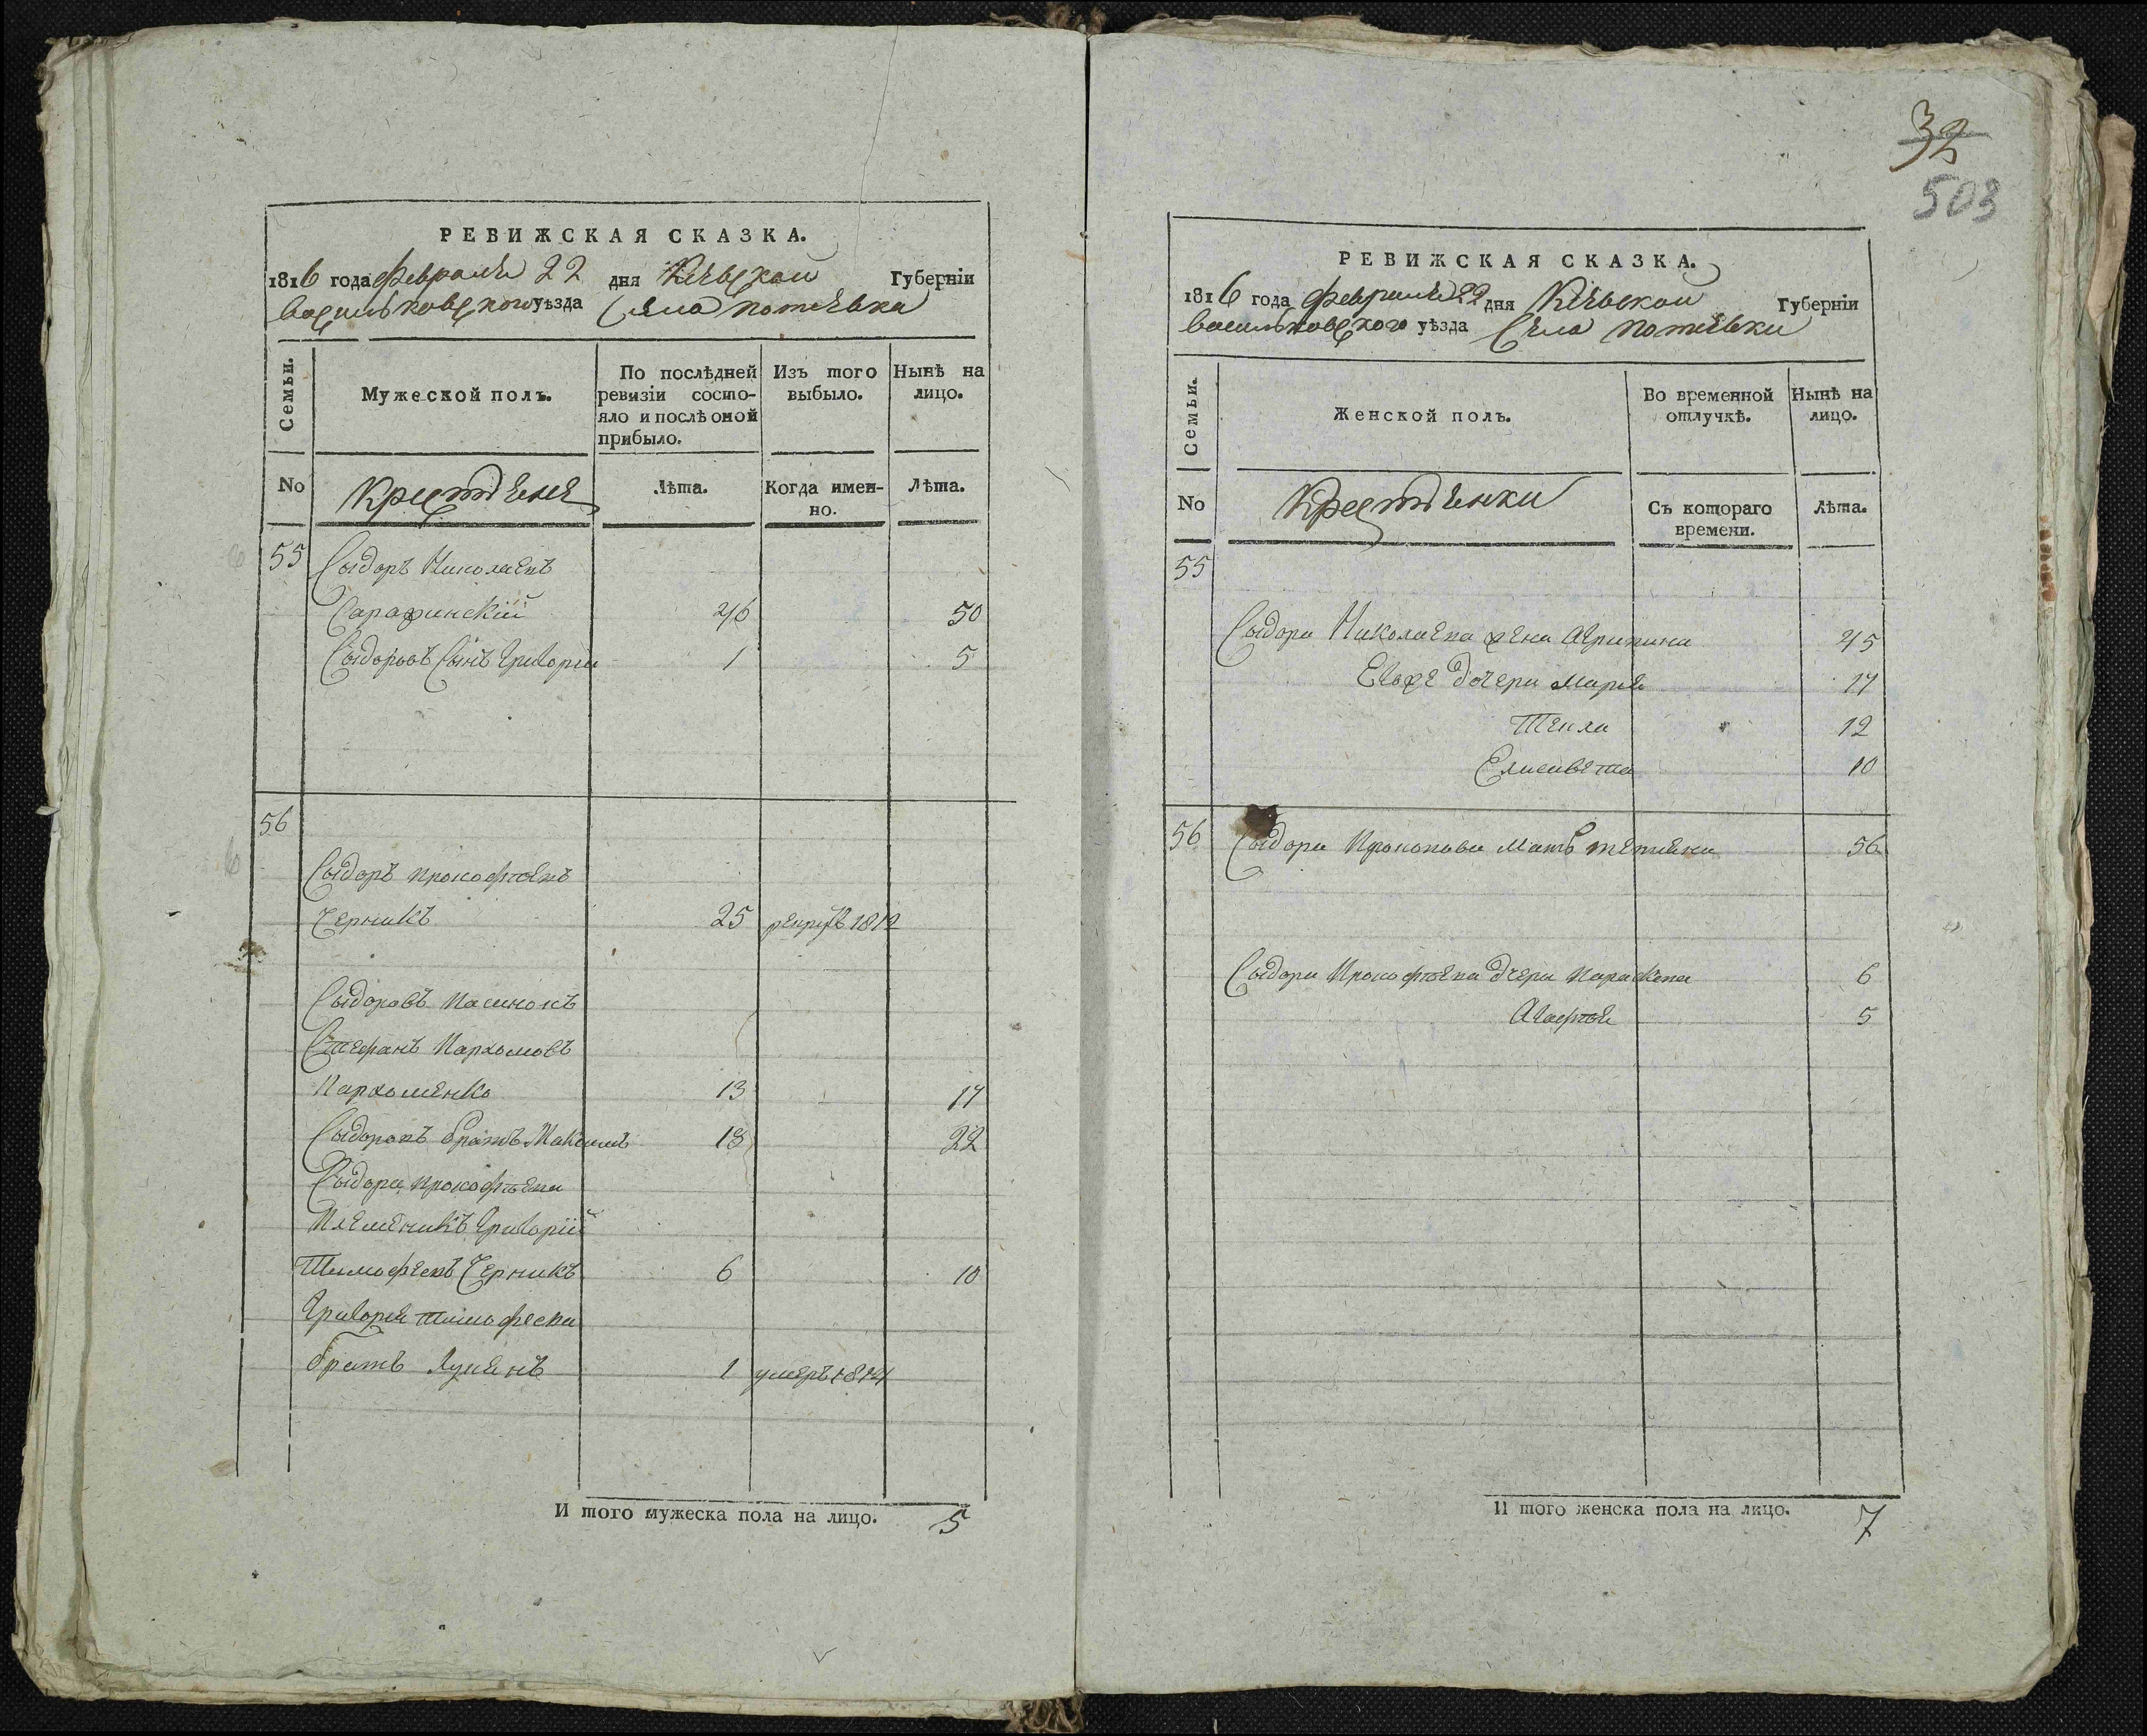 РЕВИЖСКАЯ СКАЗКА.
1816 года февраля 22 дня Кіевской Губерніи
васильковского уѣзда Села потіевка
Семьи.
Мужеской полъ.
По послѣдней ревизіи состояло и послѣ оной прибыло.
Изъ того выбыло.
Нынѣ на лицо.
No
Крестяне
Лѣта.
Когда именно.
Лѣта.
55 Сыдоръ Николаевъ
Сарафинскій 46 50
Сыдоровъ Сынъ Григорій 1 5
56
Сыдоръ прокофьевъ
Черникъ 25 рекрутъ 1812
Сыдоровъ пасинокъ
Стефанъ Пархомовъ
Пархоменко 13 17
Сыдоровъ братъ Максимъ 18 22
Сыдора прокофьева
Племеникъ Григорій
Тимофеевъ Черникъ 6 10
Григорія тимофеева
братъ Лукянъ 1 умеръ 1814
И того мужеска пола на лицо. 5
32
503
РЕВИЖСКАЯ СКАЗКА.
1816 года февраля 22 дня Кіевской Губерніи
васильковского уѣзда Села потіевки
Семьи.
Женской полъ.
Во временной отлучкѣ.
Нынѣ на лицо.
No
Крестянки
Съ котораго времени.
Лѣта.
55
Сыдора Николаева жена Агрипина 45
Егоже дочери Марія 17
Текля 12
Елисавета 10
56 Сыдора Прокопова Мать 56
Сыдора Прокофьева дчери Параскева 6
Агафья 5
И того женска пола на лицо. 7